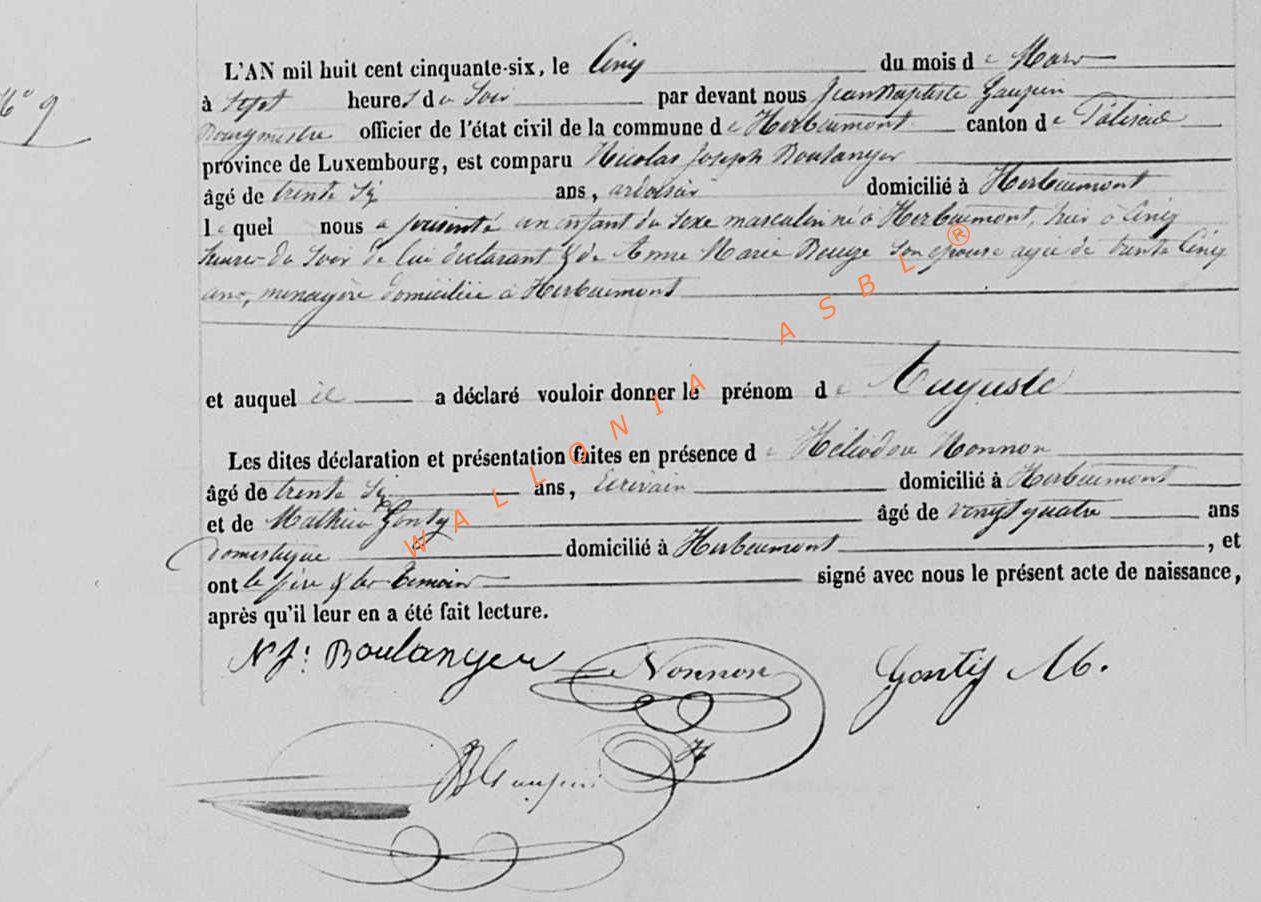 N° 9
L'AN mil huit cent cinquante-six, le Cinq du mois de Mars
à Sept heures du Soir par devant nous Jean Baptiste Gaupin
Bourgmestre officier de l'état civil de la commune de Herbeumont canton de Paliseul
province de Luxembourg, est comparu Nicolas Joseph Boulanger
âgé de trente Six ans, ardoisier domicilié à Herbeumont
lequel nous a présenté un enfant du Sexe masculin né à Herbeumont, hier à Cinq
heures du Soir de lui déclarant & de Anne Marie son épouse agée de trente Cinq
ans, menagère domiciliée à Herbeumont
et auquel il a déclaré vouloir donner le prénom de Auguste
Les dites déclaration et présentation faites en présence de Héliodore Nonnon
âgé de trente Six ans, Ecrivain domicilié à Herbeumont
et de Mathieu Gonty âgé de vingt quatre ans
domestique domicilié à Herbeumont, et
ont le père & les temoins signé avec nous le présent acte de naissance,
après qu'il leur en a été fait lecture.
N J: Boulanger Nonnon Gontij M.
WALLONIA ASBL ®